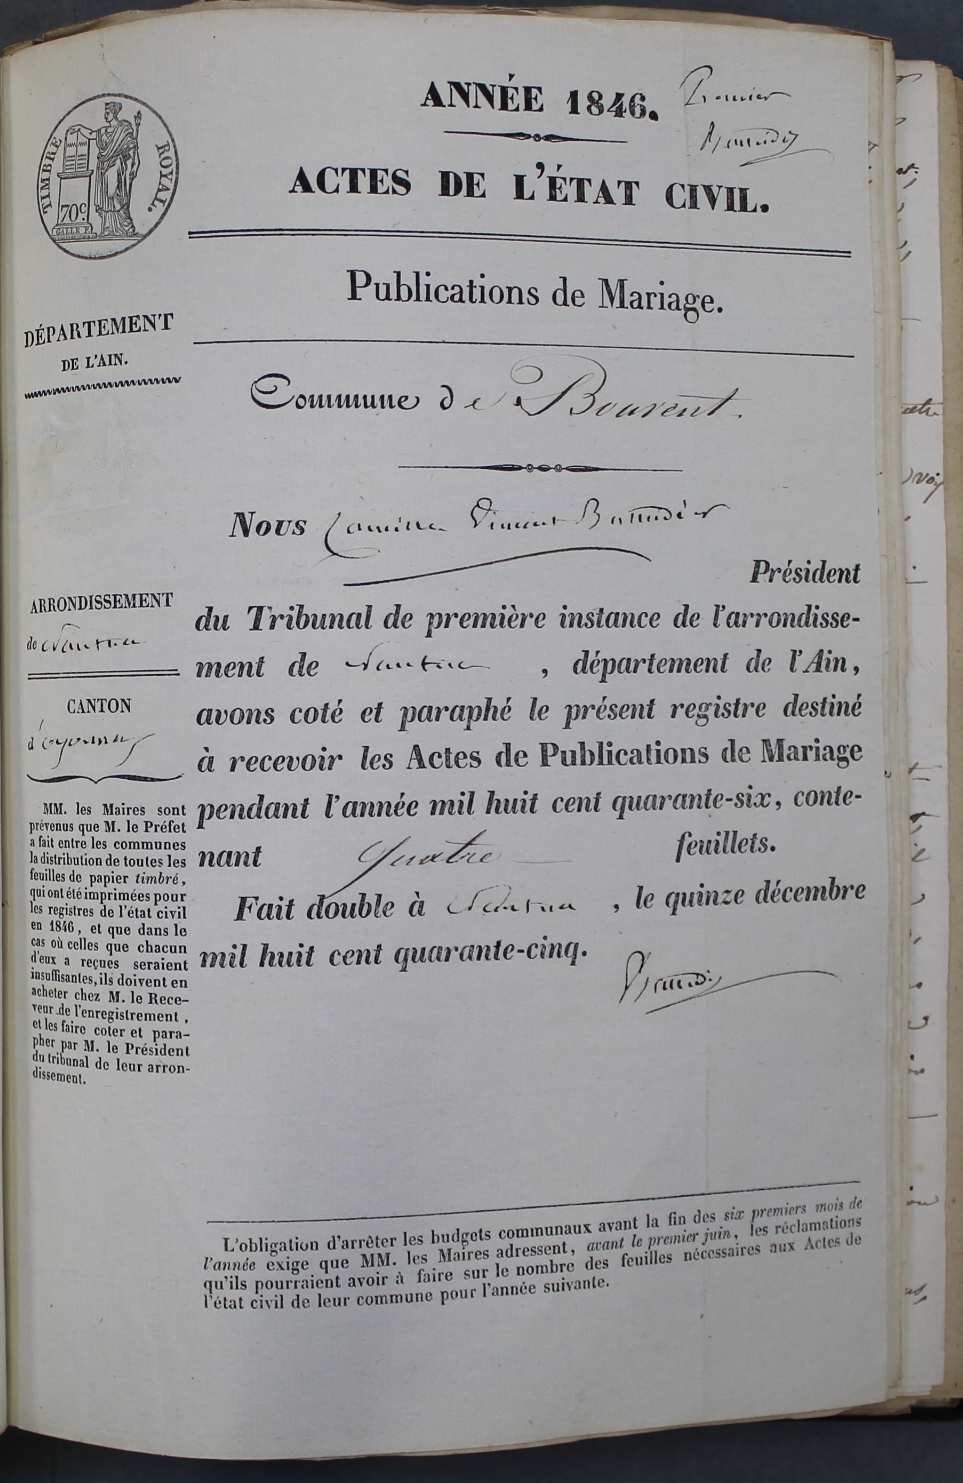 ANNÉE 1846.
Premier
ACTES DE L'ÉTAT CIVIL.
TIMBRE ROYAL.
70c.
Publications de Mariage.
DÉPARTEMENT
DE L'AIN.
Commune de Bouvent.
Nous Camille Vincent
Président
du Tribunal de première instance de l'arrondisse-
ment de Nantua, département de l'Ain,
avons coté et paraphé le présent registre destiné
à recevoir les Actes de Publications de Mariage
pendant l'année mil huit cent quarante-six, conte-
nant quatre feuillets.
Fait double à Nantua, le quinze décembre
mil huit cent quarante-cinq.
ARRONDISSEMENT
de Nantua
CANTON
d'Oyonnax
MM. les Maires sont
prévenus que M. le Préfet
a fait entre les communes
la distribution de toutes les
feuilles de papier timbré,
qui ont été imprimées pour
les registres de l'état civil
en 1846, et que dans le
cas où celles que chacun
d'eux a reçues seraient
insuffisantes, ils doivent en
acheter chez M. le Rece-
veur de l'enregistrement,
et les faire coter et para-
pher par M. le Président
du tribunal de leur arron-
dissement.
L'obligation d'arrêter les budgets communaux avant la fin des six premiers mois de
l'année exige que MM. les Maires adressent, avant le premier juin, les réclamations
qu'ils pourraient avoir à faire sur le nombre des feuilles nécessaires aux Actes de
l'état civil de leur commune pour l'année suivante.